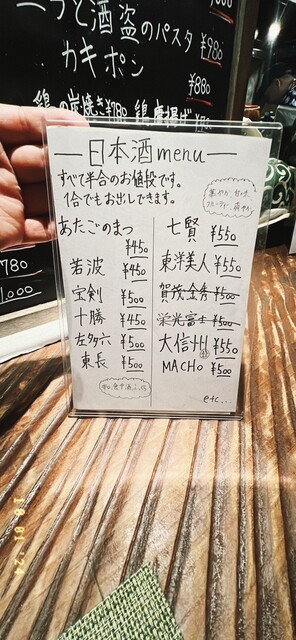 ニラと酒盗のパスタ ¥980
カキポン ¥880
鶏の炭焼き¥780 鶏唐揚げ
780
1,000
日本酒menu
すべて半合のお値段です。
1合でもお出しできます。
あたごのまつ ¥450
若波 ¥450
宝剣 ¥500
十勝 ¥450
左多六 ¥500
東長 ¥500
華やか、甘味
フルーティ
七賢 ¥550
東洋美人 ¥550
賀茂金秀 ¥500
栄光冨士 ¥500
大信州 ¥550
MACHO ¥500
etc...
18 01 '24